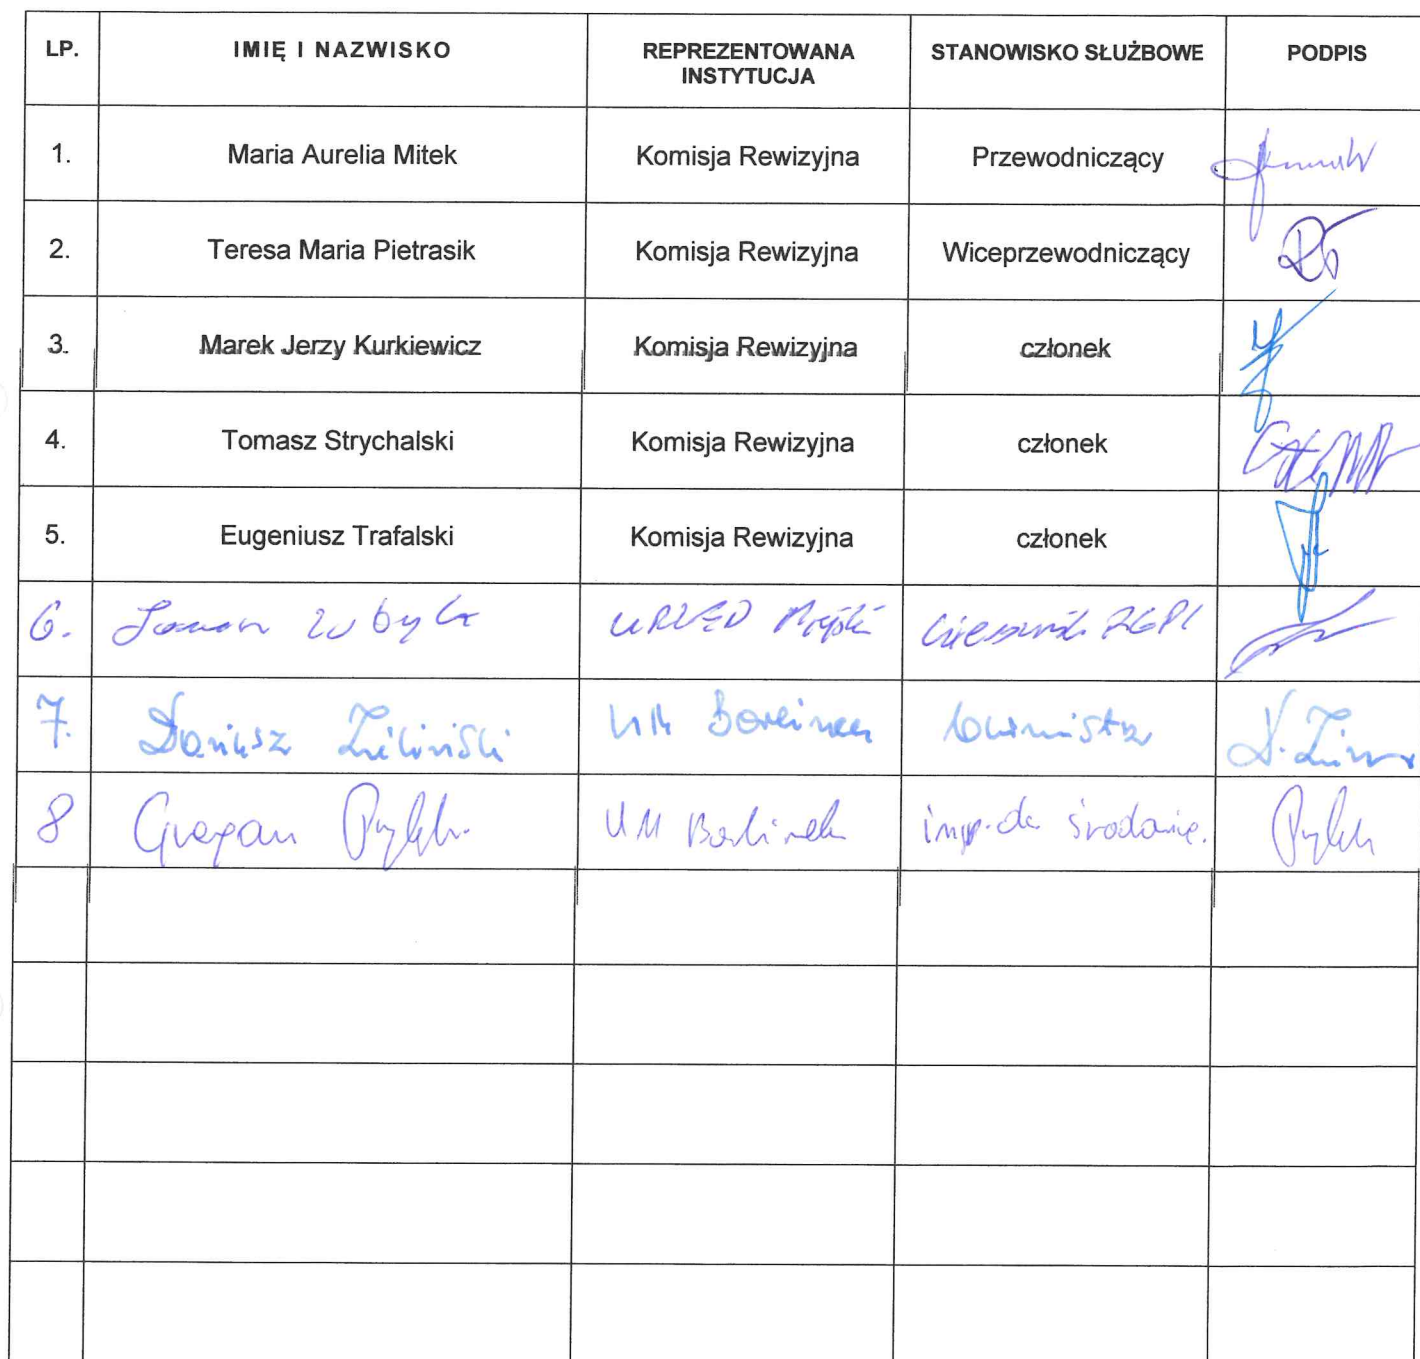 LP. IMIĘ I NAZWISKO REPREZENTOWANA INSTYTUCJA STANOWISKO SŁUŻBOWE PODPIS
1. Maria Aurelia Mitek Komisja Rewizyjna Przewodniczący
2. Teresa Maria Pietrasik Komisja Rewizyjna Wiceprzewodniczący
3. Marek Jerzy Kurkiewicz Komisja Rewizyjna członek
4. Tomasz Strychalski Komisja Rewizyjna członek
5. Eugeniusz Trafalski Komisja Rewizyjna członek
6. URZĄD Miejski
7. Dariusz Zieliński UM Barlinek burmistrz
8 UM Barlinek insp. ds.